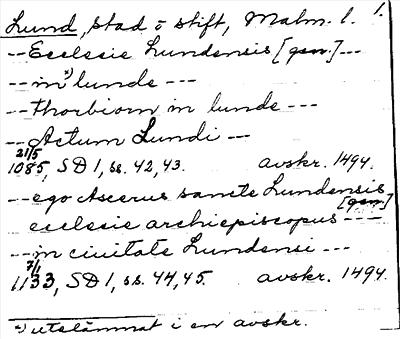 Lund, stad o stift, Malm. l. 1.
-- Ecclesie Lundensis [gen.] ---
-- in *) lunde ---
-- thorbiorn in lunde ---
-- Actum Lundi --
21/5
1085, SD 1, ss. 42, 43. avskr. 1494.
-- ego Ascerus sancte Lundensis [gen.]
ecclesie archiepiscopus ---
-- in ciuitate Lundensi ---
7/1
1133, SD 1, ss. 44, 45. avskr. 1494.
*) utelämnat i en avskr.